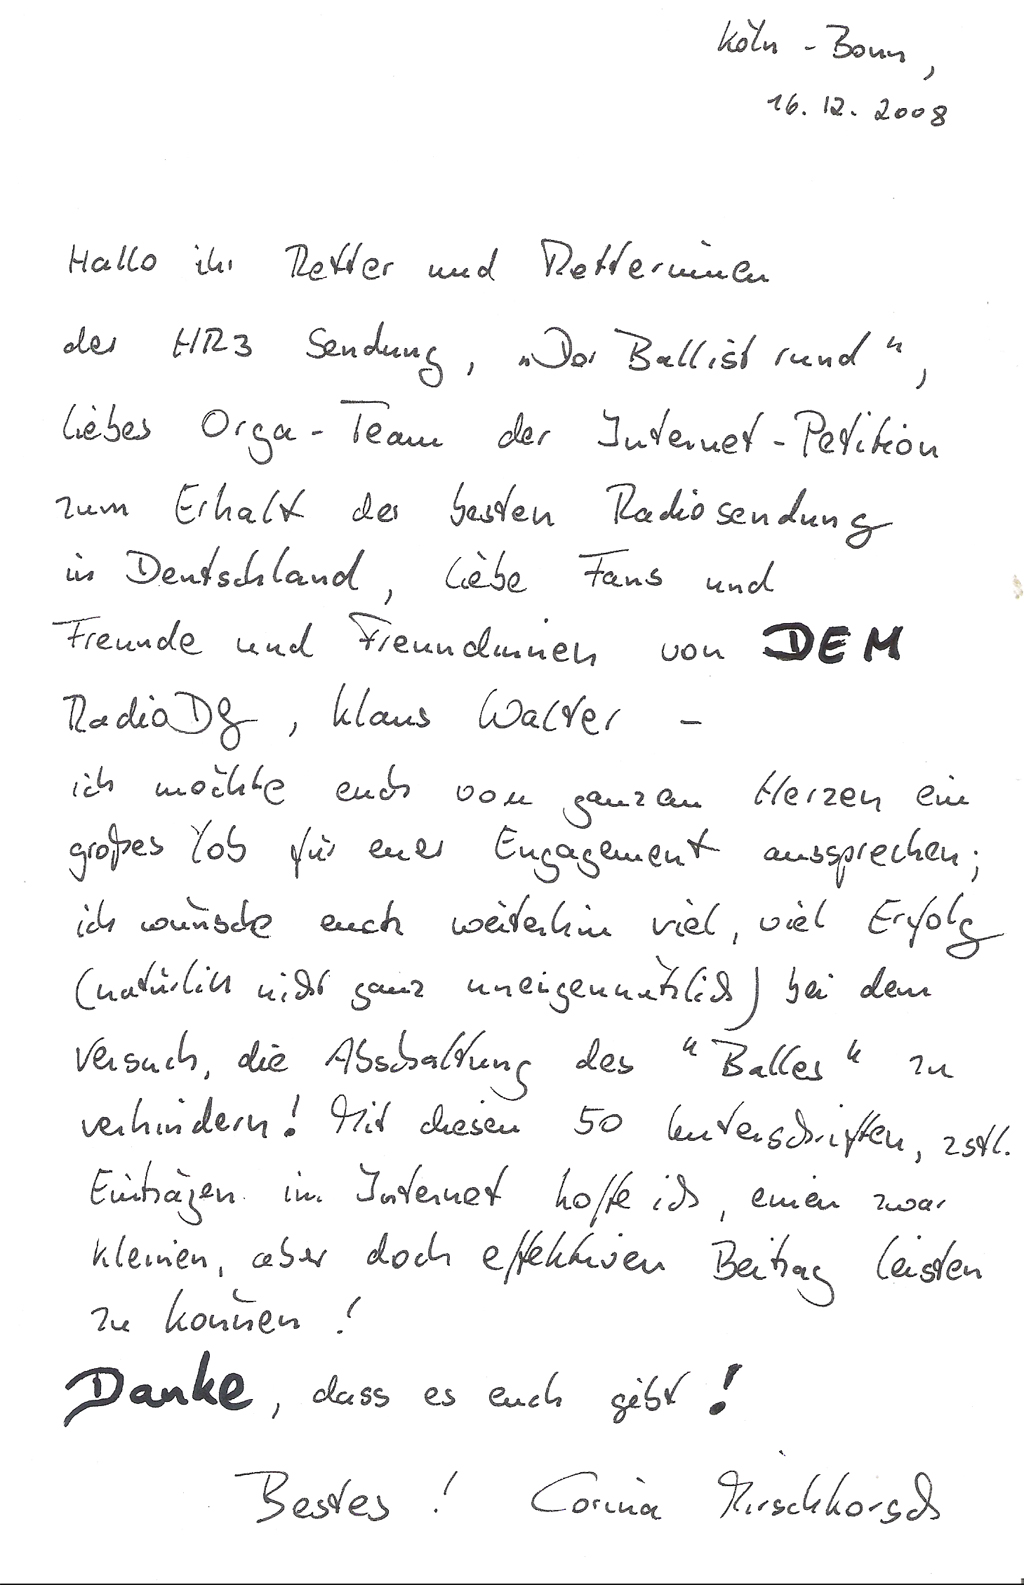 Köln - Bonn,
16.12.2008
Hallo ihr Retter und Retterinnen
der HR3 Sendung, „Der Ball ist rund“,
liebes Orga-Team der Internet-Petition
zum Erhalt der besten Radiosendung
in Deutschland, liebe Fans und
Freunde und Freundinnen von DEM
RadioDJ, Klaus Walter -
ich möchte euch von ganzem Herzen ein
großes Lob für euer Engagement aussprechen;
ich wünsche euch weiterhin viel, viel Erfolg
(natürlich nicht ganz uneigennützlich) bei dem
Versuch, die Abschaltung des "Balles" zu
verhindern! Mit diesen 50 Unterschriften, zstl.
Einträgen im Internet hoffe ich, einen zwar
kleinen, aber doch effektiven Beitrag leisten
zu können!
Danke, dass es euch gibt!
Bestes! Corina